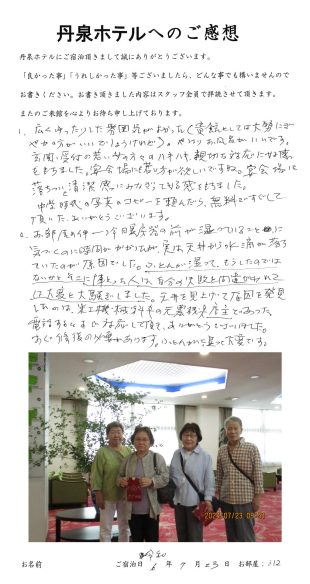 丹泉ホテルへのご感想
丹泉ホテルにご宿泊頂きまして誠にありがとうございます。
「良かった事」「うれしかった事」等ございましたら、どんな事でも構いませんので
お書きください。お書き頂きました内容はスタッフ全員で拝読させて頂きます。
またのご来館を心よりお待ち申し上げております。
1、広くゆったりした雰囲気がよかった
やかの方がいいでしょうけれど)。やっぱりお風呂がいいです。
玄関、受付の若い女の方々のハキハキ、親切な対応に好感
をもちました。宴会場に若い方が欲しいですね。宴会場に
落ちついた清潔感に
中学時代の写真のコピーを頼んだら、無料でして
頂いた。ありがとうございます。
2、お部屋の件 冷暖房器の前が湿っていることに
気づくのに時間がかかったが、実は天井から水滴が落ち
ていたのが原因でした。ふとんが湿って、もうしたのでは
ないかとそこに陣とった人は、自分の失敗と間違がわれて
は大変と大騒ぎしました。天井を見上げて原因を発見
したのは、
電話するとすぐ対応して頂き、ありがとうございました。
修復の必要があります。ふとんが湿って大変です。
2024/07/23 09:
お名前 ご宿泊日 令和 6 年 7 月 23 日 お部屋：312